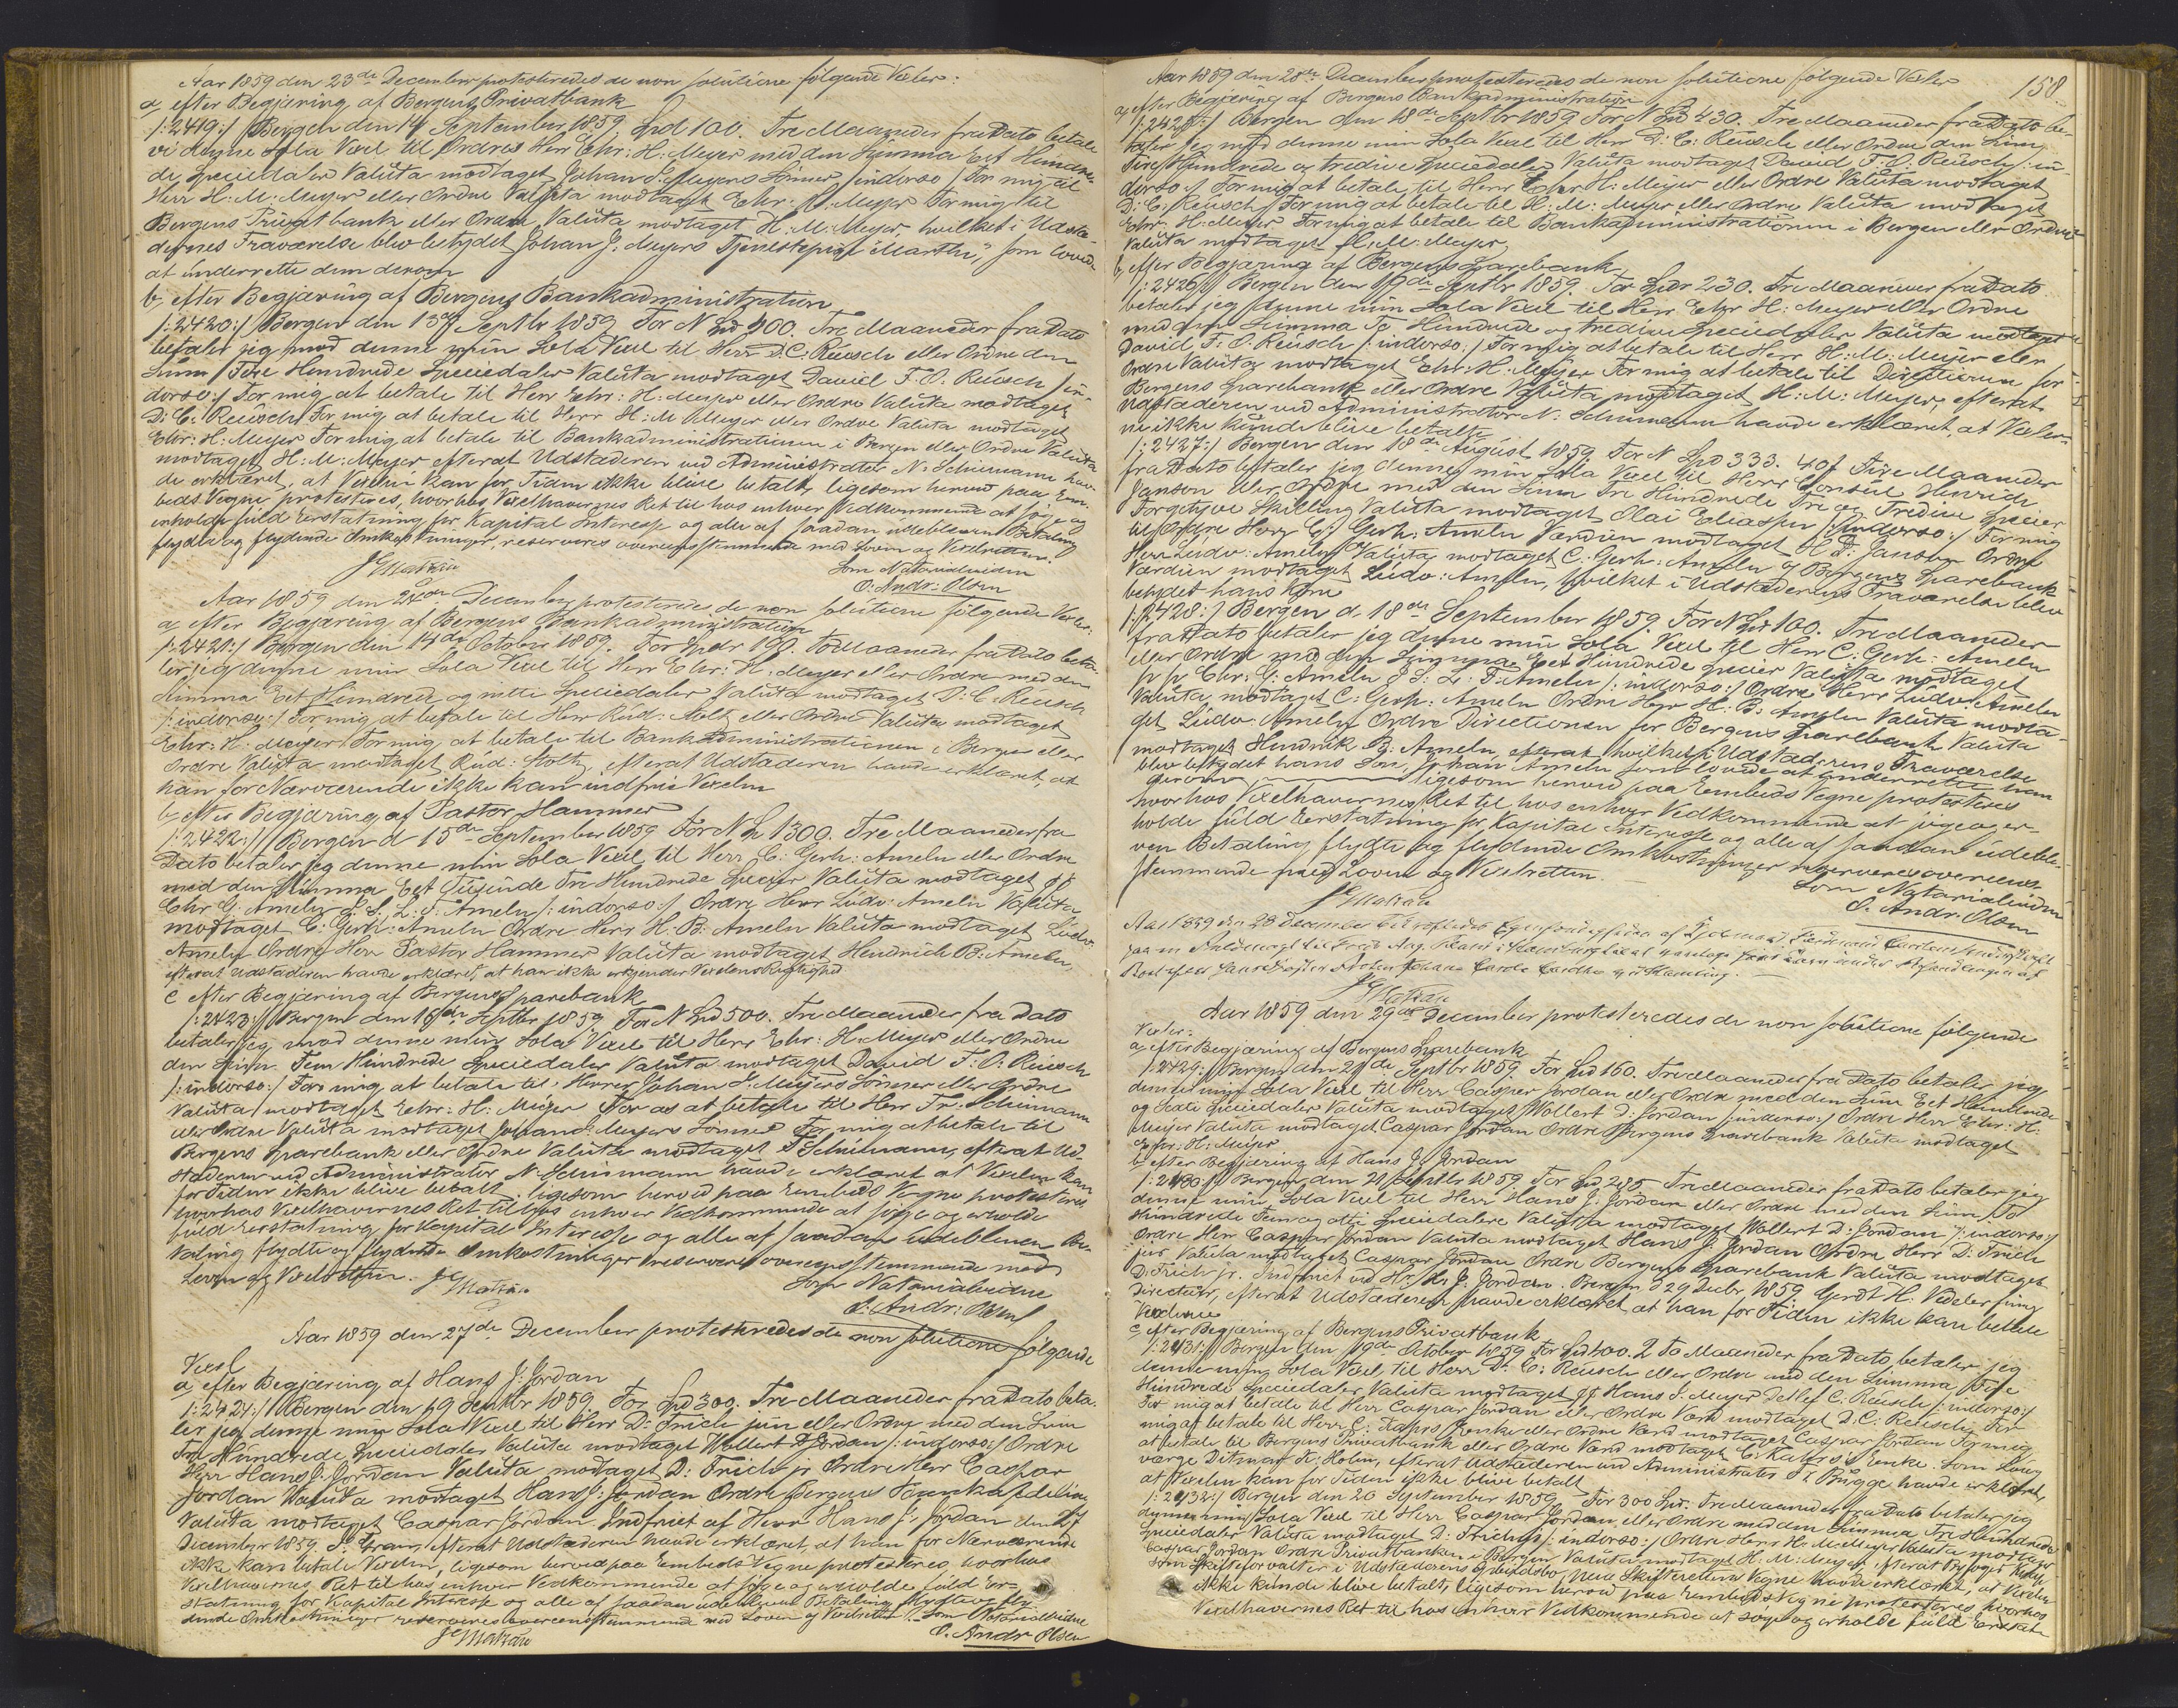 Aar 1859 den 23de December protesteredes de non solutione følgende Vexler:
a, efter Begjæring af Bergens Privatbank
/:2419:/ Bergen den 14 September 1859, Spd 100. Tre Maaneder fra Dato betale
vi denne Sola Vexel til Ordres Herr Chr: H: Meyer med den Summa Eet Hundre-
de Speciedaler Valuta modtaget Johan J. Meyers Sønner /indorso/ for mig til
Herr H: M: Meyer eller Ordre Valuta modtaget Chr: H: Meyer For mig til
Bergens Privatbank eller Ordre, Valuta modtaget H: M: Meyer, hvilket i Udste-
dernes Fraværelse blev betydet Johan J. Meyers Tjenestepige "Marthe", som lovede
at underrette dem derom
b, efter Begjæring af Bergens Bankadministration
/:2420:/ Bergen den 13de Septbr 1859 For N Spd 400. Tre Maaneder fra Dato
betaler jeg mod denne min Sola Vexel til Herr D. C. Reusch eller Ordre den
Sum Fire Hundrede Speciedaler Valuta modtaget David F. O. Reusch /in-
dorso:/ For mig at betale til Herr Chr: H: Meyer eller Ordre Valuta modtaget
D: C: Reusch For mig at betale til Herr H: M Meyer eller Ordre Valuta modtaget
Chr: H: Meyer For mig at betale til Bankadministrationen i Bergen eller Ordre Valuta
modtaget H: M: Meyer efterat Udstæderen ved Administrator N. Schumann hav-
de erklæret, at Vexelen kan for Tiden ikke blive betalt, ligesom herved paa Em-
beds Vegne protesteres, hvorhos Vexelhavernes Ret til hos enhver Vedkommende at søge og
erholde fuld Erstatning for Kapital Interesse og alle af saadan udebleven Betaling
flydte og flydende Omkostninger, reserveres overeensstemmende med Loven og Vexelretten.
Som Notarialvidne
O. Andr: Olsen
Aar 1859 den 24de December protesteredes de non solutione følgende Vexler:
a, efter Begjæring af Bergens Bankadministration
/:2421:/ Bergen den 14de October 1859. For Spdr 190. To Maaneder fra Dato beta-
ler jeg denne min Sola Vexel til Herr Chr: H: Meyer eller Ordre med den
Summa Eet Hundrede og nitti Speciedaler Valuta modtaget D: C. Reusch
/:indorso:/ For mig at betale til Herr Rud: Stolt eller Ordre Valuta modtaget
Chr: H: Meyer For mig at betale til Bankadministrationen i Bergen eller
Ordre Valuta modtaget Rud: Stolt, efterat Udstæderen havde erklæret, at
han for Nærværende ikke kan indfrie Vexelen
b, efter Begjæring af Pastor Hammer
/:2422:/ Bergen d 15de September 1859 For N Sp 1300. Tre Maaneder fra
Dato betaler jeg denne min Sola Vexel til Herr C: Gerh: Ameln eller Ordre
med den Summa Eet Tusinde Tre Hundrede Specier Valuta modtaget pp
Chr G: Ameln & S. L: F: Ameln /:indorso:/ Ordre Herr Ludv: Ameln Valuta
modtaget C: Gerh: Ameln Ordre Herr H: B: Ameln Valuta modtaget Ludv:
Ameln Ordre Herr Pastor Hammer Valuta modtaget Hendrich B: Ameln,
efterat Udstæderen havde erklæret, at han ikke erkjender Vexelens Rigtighed
c efter Begjæring af Bergens Sparebank
/:2423:/ Bergen den 16de Septbr 1859 For N Spd 500. Tre Maaneder fra Dato
betaler jeg mod denne min Sola Vexel til Herr Chr: H: Meyer eller Ordre
den Sum Fem Hundrede Speciedaler Valuta modtaget David F: O: Reusch
/:indorso:/ For mig at betale til Herrer Johan J Meyers Sønner eller Ordre
Valuta modtaget Chr: H: Meyer For os at betale til Herr Fr: Schumann
eller Ordre Valuta modtaget Johan J Meyers Sønner For mig at betale til
Bergens Sparebank eller Ordre Valuta modtaget F Schumann, efterat Ud-
stæderen ved Administrator N. Schumann havde erklæret at Vexelen kan
for Tiden ikke blive betalt, ligesom herved paa Embeds Vegne protesteres,
hvorhos Vexelhavernes Ret til hos enhver Vedkommende at søge og erholde
fuld Erstatning for Kapital Interesse og alle af saadan udebleven Be-
taling flydte og flydende Omkostninger reserveres overeensstemmende med
Loven og Vexelretten.
Som Notarialvidne
O: Andr: Olsen
Aar 1859 den 27de December protesteredes de non solutione følgende
Vexel
a, efter Begjæring af Hans J: Jordan
/:2424:/ Bergen den 19 Septbr 1859. For Spd 300. Tre Maaneder fra Dato beta-
ler jeg denne min Sola Vexel til Herr D: Frich jun eller Ordre med den Sum
Tre Hundrede Speciedaler Valuta modtaget Wollert D Jordan /:indorso:/ Ordre
Herr Hans J: Jordan Valuta modtaget D: Frich jr Ordre Herr Caspar
Jordan Valuta modtaget Hans J: Jordan Ordre Bergens Bankafdeling
Valuta modtaget Caspar Jordan Indfriet af Herr Hans J: Jordan den 27
December 1859, efterat Udstæderen havde erklæret, at han for Nærværende
ikke kan betale Vexelen, ligesom herved paa Embeds Vegne protesteres, hvorhos
Vexelhavernes Ret til hos enhver Vedkommende at søge og erholde fuld Er-
statning for Kapital Interesse og alle af saadan udebleven Betaling flydte og fly-
dende Omkostninger reserveres overeensstemmende med Loven og Vexelretten. Som Notarialvidne
O. Andr Olsen
158.
Aar 1859 den 28de December protesteredes de non solutione følgende Vexler
a, efter Begjæring af Bergens Bankadministration
/:2425:/ Bergen den 18de Septbr 1859 For N Spd 430. Tre Maaneder fra Dato be-
taler jeg mod denne min Sola Vexel til Herr D: C: Reusch eller Ordre den Sum
Fire Hundrede og tredive Speciedaler Valuta modtaget David F: O: Reusch /: in-
dorso:/ For mig at betale til Herr Chr H: Meyer eller Ordre Valuta modtaget
D: C: Reusch For mig at betale til H: M: Meyer eller Ordre Valuta modtaget
Chr: H: Meyer For mig at betale til Bankadministrationen i Bergen eller Ordre
Valuta modtaget H: M: Meyer,
b, efter Begjæring af Bergens Sparebank
/:2426:/ Bergen den 19de Septbr 1859. For Spdr 230. Tre Maaneder fra Dato
betaler jeg denne min Sola Vexel til Herr Chr H: Meyer eller Ordre
med den Summa To Hundrede og tredive Speciedaler Valuta modtaget
David F: O. Reusch /:indorso:/ For mig at betale til Herr H: M: Meyer eller
Ordre Valuta modtaget Chr: H: Meyer For mig at betale til Directionen for
Bergens Sparebank eller Ordre Valuta modtaget H: M: Meyer, efterat
Udstæderen ved Administrator N: Schumann havde erklæret, at Vexler-
ne ikke kunde blive betalte
/:2427:/ Bergen den 18de August 1859 For N Spd 333. 40 s Fire Maaneder
fra Dato betaler jeg denne min Sola Vexel til Herr Consul Henrich
Janson eller Ordre med den Sum Tre Hundrede Tre og Tredive Specier
Førgetyve Skilling Valuta modtaget Olai Eliassen /:indorso:/ For mig
til Ordre Herr C: Gerh: Ameln Værdien modtaget H D: Janson Ordre
Herr Ludv: Ameln Valuta modtaget C: Gerh: Ameln Bergens Sparebank
Værdien modtaget Ludv: Ameln, hvilket i Udstæderens Fraværelse blev
betydet hans Kone
/:2428:/ Bergen d. 18de September 1859. For N Spd 100. Tre Maaneder
fra Dato betaler jeg denne min Sola Vexel til Herr C: Gerh: Ameln
eller Ordre med den Summa Eet Hundrede Specier Valuta modtaget
p p Chr: G: Ameln & S: L: F: Ameln /:indorso:/ Ordre Herr Ludv: Ameln
Valuta modtaget C: Gerh: Ameln Ordre Herr H: B: Ameln Valuta modta-
get Ludv: Ameln Ordre Directionen for Bergens Sparebank Valuta
modtaget Hendrik B: Ameln, efterat hvilket i Udstæderens Fraværelse
blev betydet hans Søn, Johan Ameln som lovede at underrette ham
derom ligesom herved paa Embeds Vegne protesteres
hvorhos Vexelhavernes Ret til hos enhver Vedkommende at søge og er-
holde fuld Erstatning for Kapital Interesse og alle af saadan udeble-
ven Betaling flydte og flydende Omkostninger reserveres overeens-
stemmende med Loven og Vexelretten.
Som Notarialvidne
O. Andr. Olsen
Aar 1859 den 28 December
Aar 1859 den 29de December protesteredes de non solutione følgende
Vexler:
a, efter Begjæring af Bergens Sparebank
/:2429:/ Bergen den 21de Septbr 1859 For Spd 160. Tre Maaneder fra Dato betaler jeg
denne min Sola Vexel til Herr Caspar Jordan eller Ordre med den Sum Eet Hundrede
og Sexti Speciedaler Valuta modtaget Wollert D: Jordan /indorso:/ Ordre Herr Chr: H:
Meyer Valuta modtaget Caspar Jordan Ordre Bergens Sparebank Valuta modtaget
Chr: H: Meyer
b, efter Begjæring af Hans J: Jordan
/:2430:/ Bergen den 21 Septbr 1859 For Spd 285 Tre Maaneder fra Dato betaler jeg
denne min Sola Vexel til Herr Hans J: Jordan eller Ordre med den Sum To
Hundrede Fem og otti Speciedalere Valuta modtaget Wollert D: Jordan /:indorso:/
Ordre Herr Caspar Jordan Valuta modtaget Hans J: Jordan Ordre Herr D: Frich
jun Valuta modtaget Caspar Jordan Ordre Bergens Sparebank Valuta modtaget
D: Frich jr. Indfriet ved Hr. H. J: Jordan. Bergen d 29 Decbr 1859 Gerdt H. Vedeler fung
Directeur, efterat Udstæderen havde erklæret, at han for Tiden ikke kan betale
Vexlerne
c, efter Begjæring af Bergens Privatbank
/:2431:/ Bergen den 19de October 1859 For Spd 400. 2 To Maaneder fra Dato betaler jeg
denne min Sola Vexel til Herr D: C: Reusch eller Ordre med den Summa Fire
Hundrede Speciedaler Valuta modtaget pp Hans J. Meyer Detlef C: Reusch /:indorso:/
For mig at betale til Herr Caspar Jordan eller Ordre Værd modtaget D. C: Reusch For
mig at betale til Herr C: Kahrs Jenke eller Ordre Værd modtaget Caspar Jordan For mig
at betale til Bergens Privatbank eller Ordre Værd modtaget C: Kahrs Jenke. Som Laug-
værge Ditman K: Holm, efterat Udstæderen ved Administrator Fr Brügge havde erklæret,
at Vexelen kan for Tiden ikke blive betalt
/:2432:/ Bergen den 20 September 1859 For 300 Spd. Tre Maaneder fra Dato betaler jeg
denne min Sola Vexel til Herr Caspar Jordan eller Ordre med den Summa Tre Hundrede
Speciedaler Valuta modtaget D: Frich jr /:indorso:/ Ordre Herr H: M: Meyer Valuta modtaget
Caspar Jordan Ordre Privatbanken i Bergen Valuta modtaget H: M: Meyer efterat Byfoged
som Skifteforvalter i Udstæderens Opbudsbo, paa Skifterettens Vegne havde erklæret, at Vexelen
ikke kunde blive betalt, ligesom herved paa Embeds Vegne protesteres, hvorhos
Vexelhavernes Ret til hos enhver Vedkommende at søge og erholde fuld Erstat-